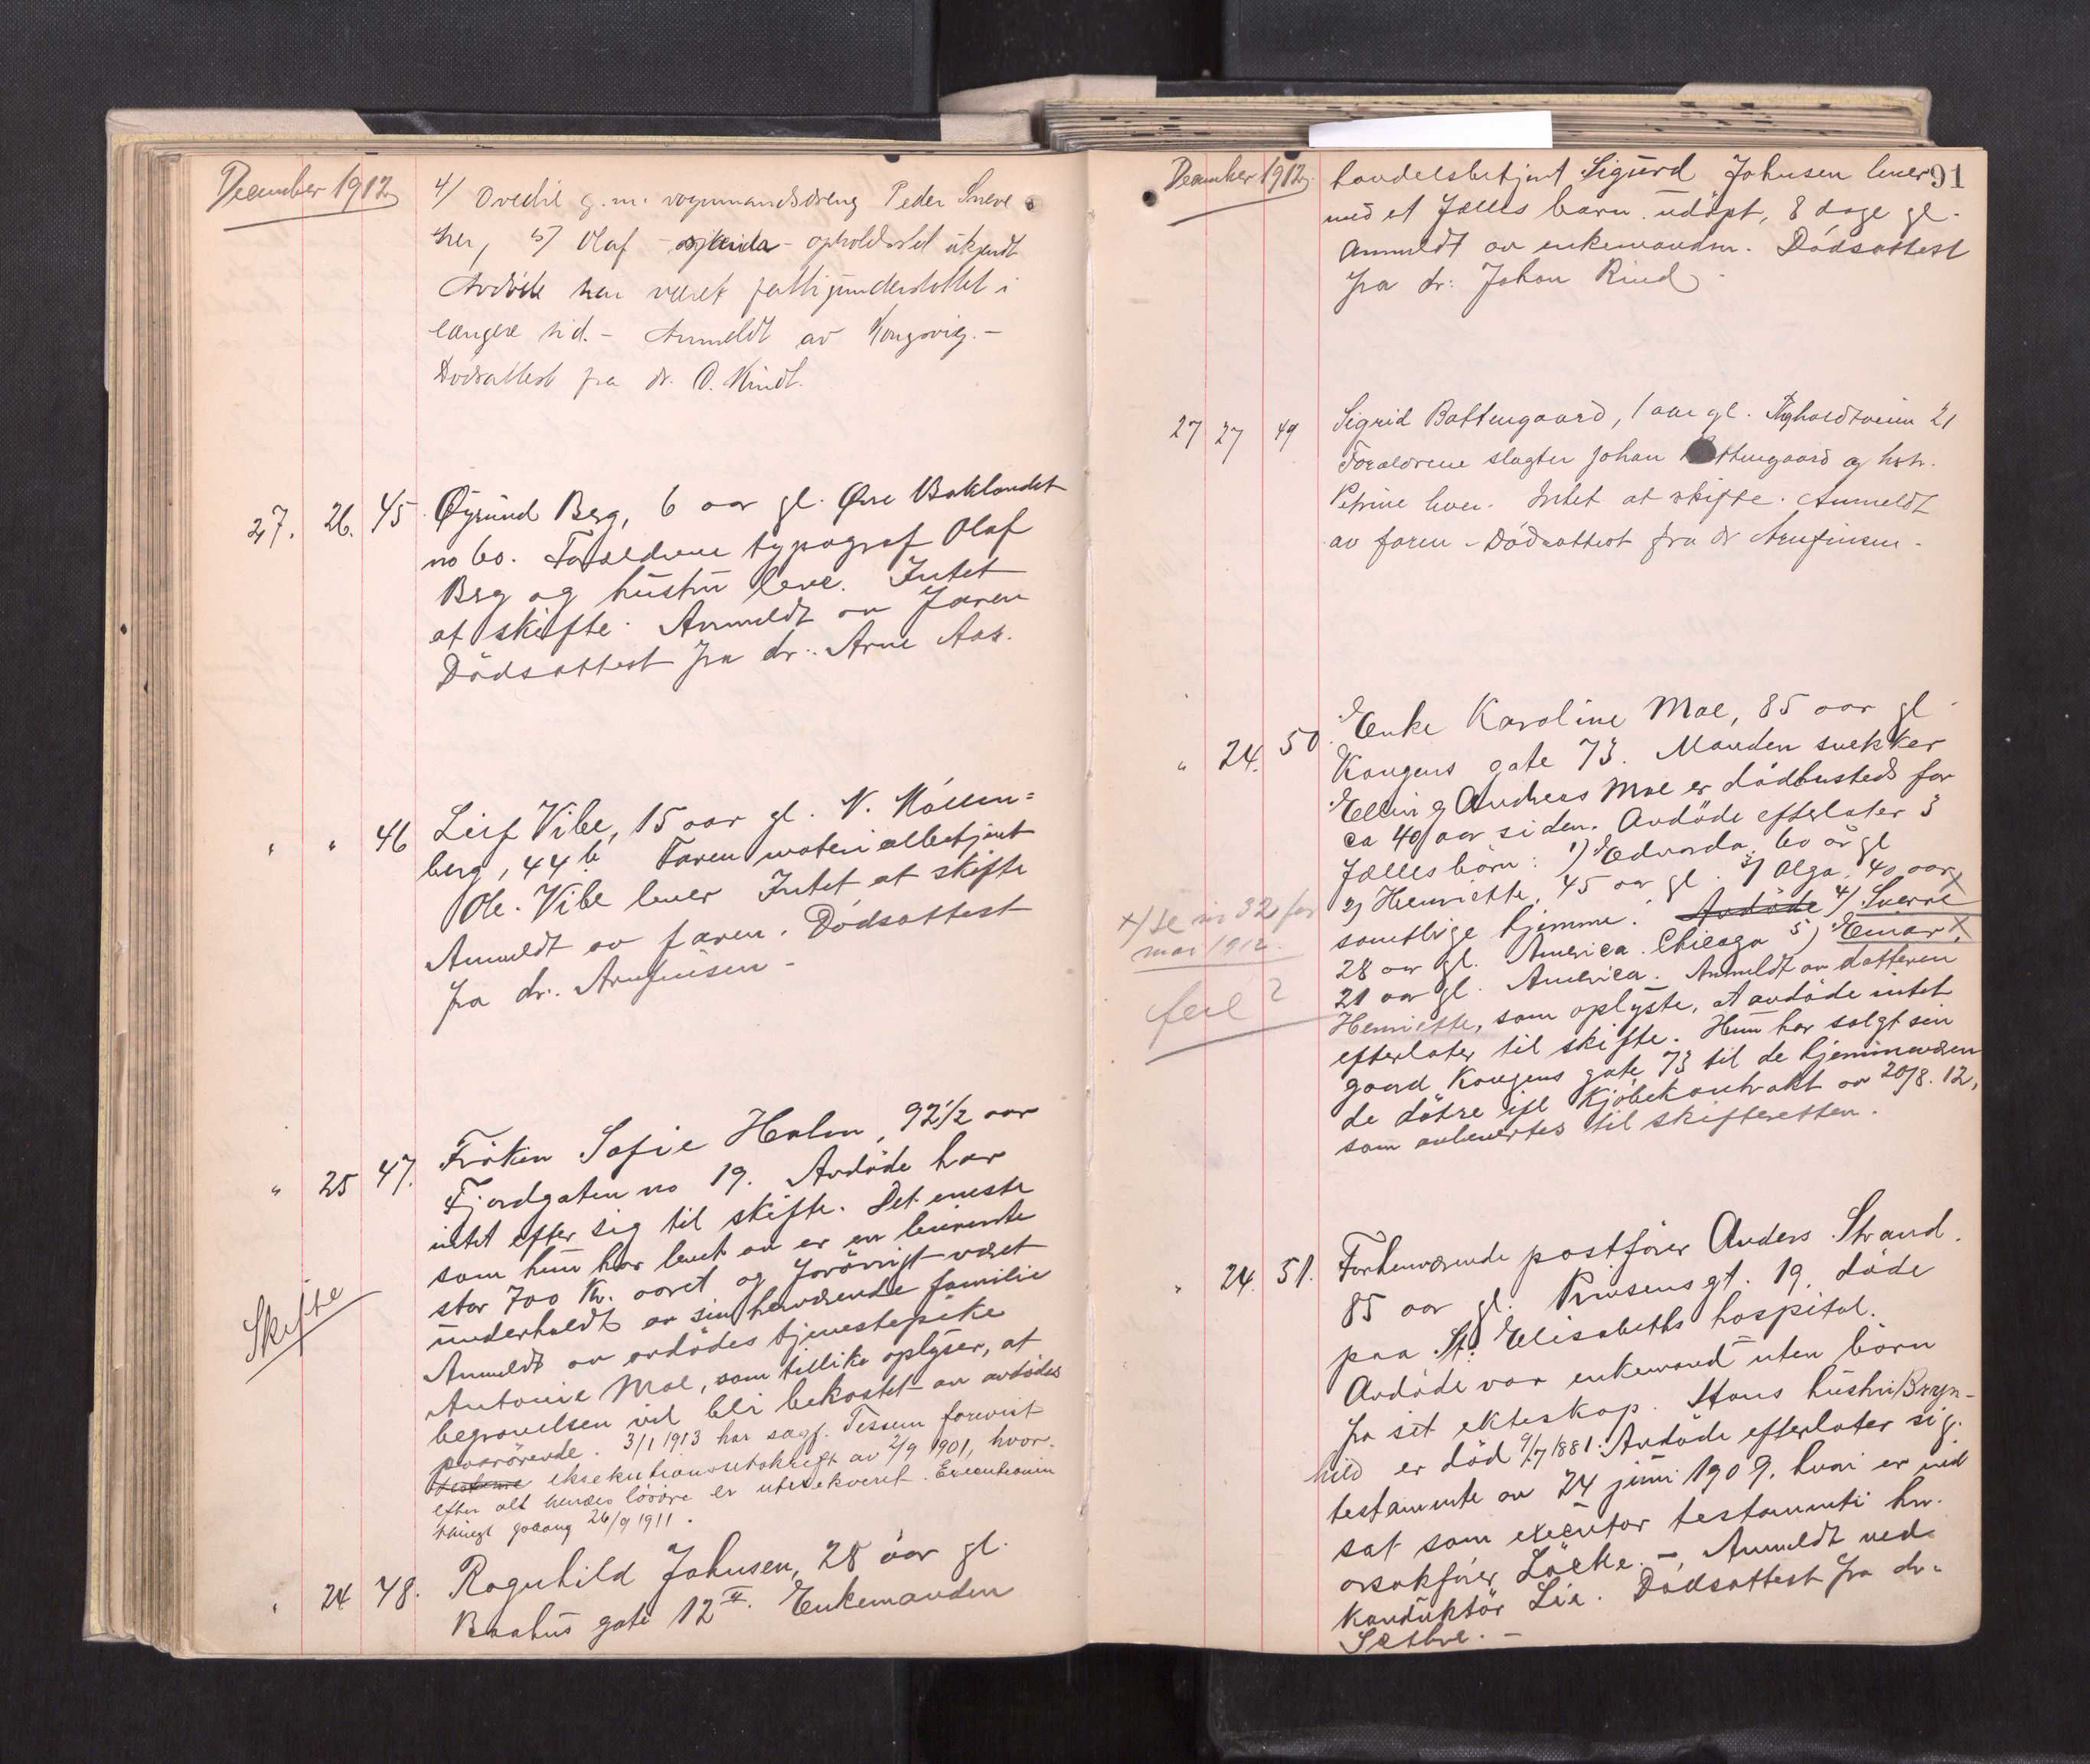 December 1912
4) Ovedie g.m. vognmandsdreng Peder Sneve
her, 5) Olaf - opholdssted ukjendt
Avdöde har været fattigunderstöttet i
længere tid. - Anmeldt av Kongsvig. -
Dödsattest fra dr. O. Kindt.
27. 26. 45. Öyvind Berg, 6 aar gl. Övre Baklandet
no 60. Forældrene typograf Olaf
Berg og hustru lever. Intet
at skifte. Anmeldt av faren
Dödsattest fra dr. Arne Aas.
" " 46 Leif Vibe, 15 aar gl. N. Möllen=
berg, 44 b. Faren materialbetjent
Ole Vibe lever Intet at skifte
Anmeldt av faren. Dödsattest
fra dr. Arnfinsen -
" 25 47. Fröken Sofie Holm, 92 1/2 aar
Fjordgaten no 19. Avdöde har
intet efter sig til skifte. Det eneste
som hun har levet av er en livrente
stor 700 Kr. aaret og forövrigt været
underholdt av sin herværende familie
Skifte
Anmeldt av avdödes tjenestepike
Antonie Moe, som tillike oplyser, at
begravelsen vil bli bekostet av avdödes
paarörende. 3/1 1913 har sagf. Tessem forevist
eksekutionsutskrift av 2/9 1901, hvor-
efter alt hendes lösöre er utexekveret. Executionen
tningl. paaang 26/9 1911.
" 24 48. Ragnhild Johnsen, 28 aar gl.
Baahus gate 12 II. Enkemanden
December 1912
91
handelsbetjent Sigurd Johnsen lever
med et fælles barn udöpt, 8 dage gl.
Anmeldt av enkemanden. Dödsattest
fra dr. Johan Rind
27 27 49 Sigrid Battengaard, 1 aar gl. 21
Forældrene slagter Johan Battengaard og hstr.
Petrine lever. Intet at skifte. Anmeldt
av faren - Dödsattest fra dr Arnfinsen -
" 24. 50. Enke Karoline Moe, 85 aar gl.
Kongens gate 73. Manden snekker
Elling Andreas Moe er död busteds for
ca 40 aar siden. Avdöde efterlater 3
fælles börn: 1) Edvarda 60 år gl
2) Henriette, 45 aar gl. 3) Olga, 40 aar,
samtlige hjemme. Avdöde 4) Sverre x
28 aar gl. America. Chicago 5) Einar, x
21 aar gl. America. Anmeldt av datteren
Henriette, som oplyste, at avdöde intet
efterlater til skifte. Hun har solgt sin
gaard Kongens gate 73 til de hjemmeværen
de dötre ifl kjöbekontrakt av 20/8. 12,
som anleveres til skifteretten.
x) se nr 32 for
mai 1912.
feil?
" 24. 51. Forhenværende postförer Anders Strand.
85 aar gl. Prinsensgt. 19. döde
paa St. Elisabeths hospital.
Avdöde var enkemand uten börn
fra sit ekteskap. Hans hustru Bryn-
hild er död 9/7 1881. Avdöde efterlater sig.
testamente av 24 juni 1909. hvori er ind
sat som executor testamenti hr.
orsakförer Löcke. -, Anmeldt ved
konduktör Lie. Dödsattest fra dr.
Sethre. -